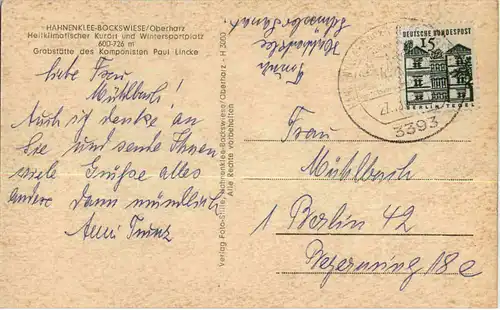 HAHNENKLEE-BOCKSWIESE/Oberharz
Heilklimatischer Kurort und Wintersportplatz
600-726 m
Grabstätte des Komponisten Paul Lincke
Liebe Frau
Mühlbach!
Auch ich denke an
Sie und sende Ihnen
viele Grüße alles
andere dann mündlich
Verlag Foto-Stille, Hahnenklee-Bockswiese/Oberharz - H 3203
Alle Rechte vorbehalten
Hahnenklee
DEUTSCHE BUNDESPOST
15
BERLIN TEGEL
3393
Frau
Mühlbach
1 Berlin 42
18 c